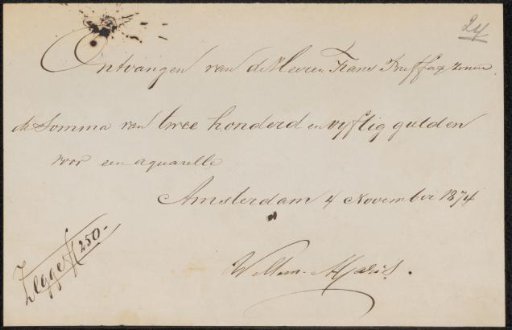 24
Ontvangen van de Heeren Frans Buffa & zonen
de Somma van twee honderd en vyftig gulden
voor een aquarelle
Amsterdam 4 November 1874
Zegge ƒ 250-
Willem Maris.